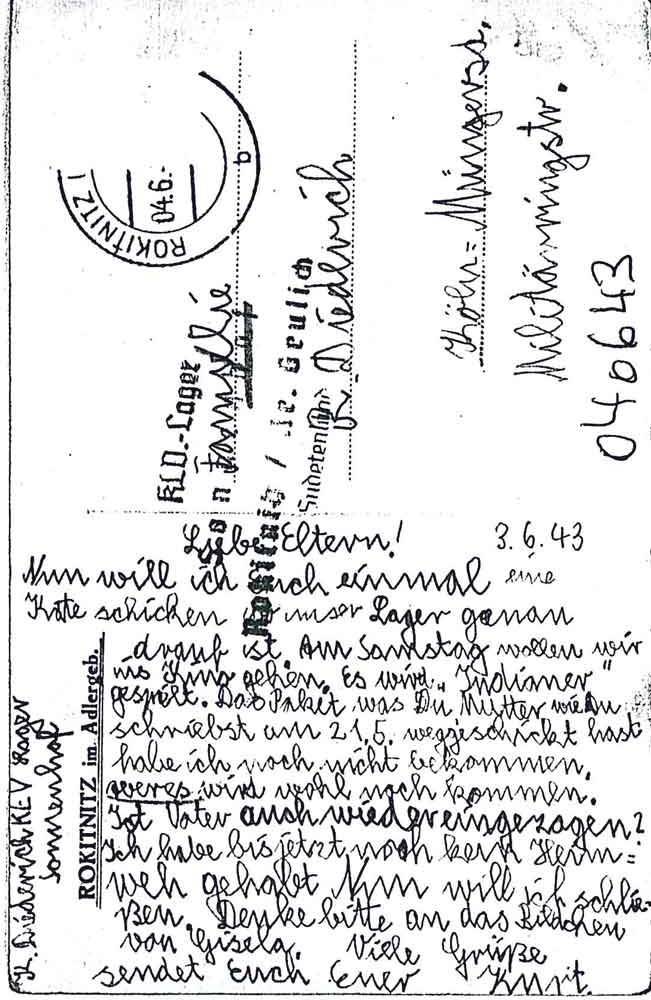 Liebe Eltern! 3.6.43
Nun will ich Euch einmal eine
Kate schicken wo unser Lager genau
drauf ist. Am Samstag wollen wir
ins Kino gehen. Es wird „Indianer"
gespielt. Das Paket was Du Mutter wie Du
schriebst am 21.5. weggeschickt hast
habe ich noch nicht bekommen.
aber es wird wohl noch kommen.
Ist Vater auch wieder eingezogen?
Ich habe bis jetzt noch kein Heim=
weh gehabt Nun will ich schlie-
ßen. Denke bitte an das Bildchen
von Gisela. Viele Grüße
sendet Euch Euer Kurt.
K. Diederich KLV Lager
Sonnenhof
ROKITNITZ im Adlergeb.
ROKITNITZ 1
04.6.-
b
KLD.-Lager
An Familie
Rokitnitz / Adr. Geulich
Sudetenland
K. Diederich
Köln=Müngersd.
Militärringstr.
040643